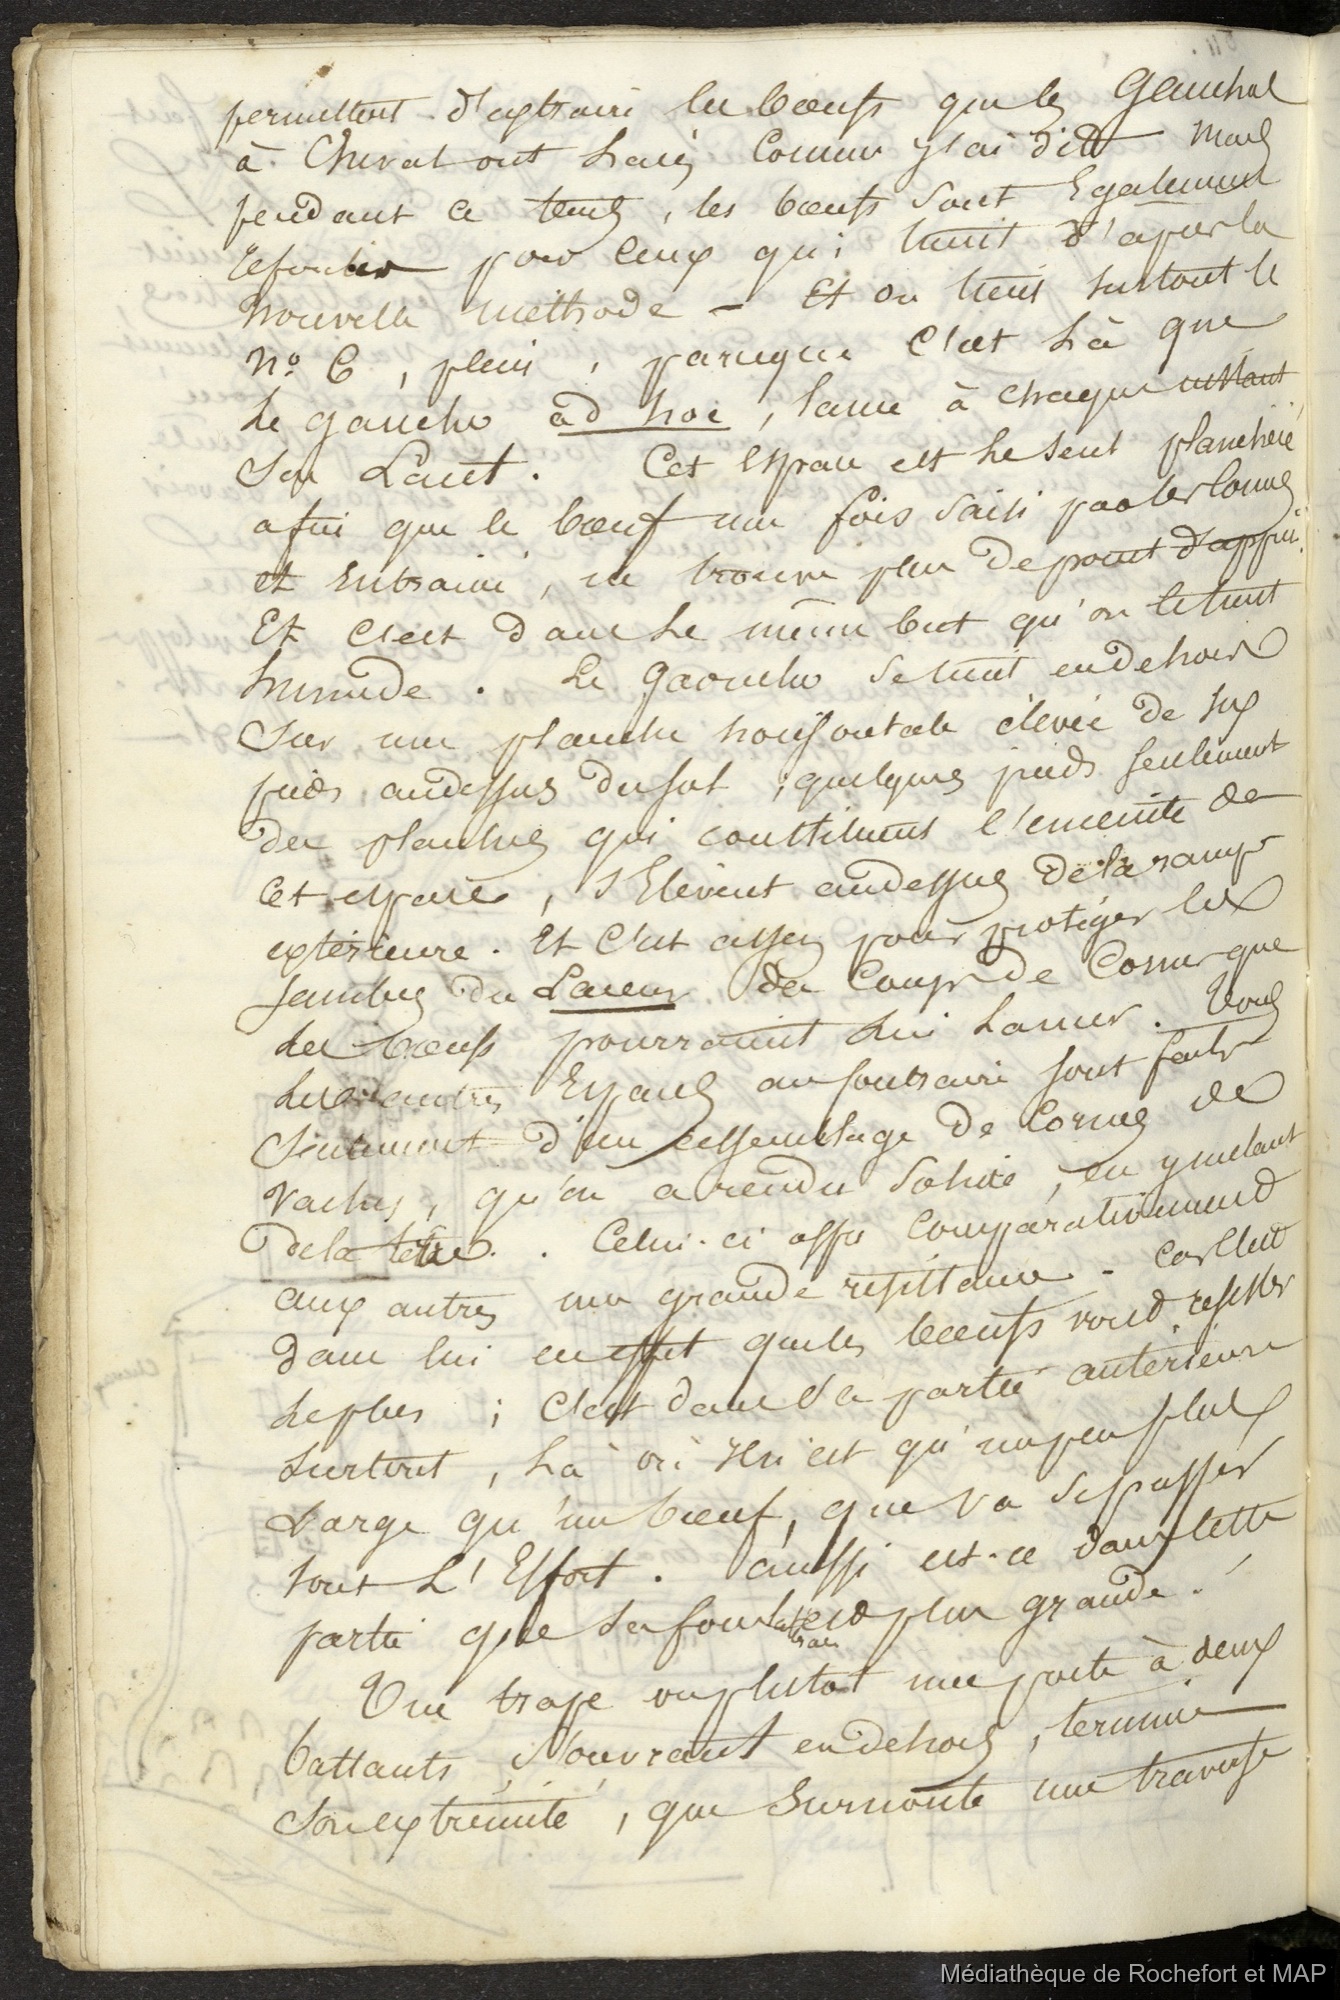 permettent d'extraire les boeufs que les Gauchos
à Cheval ont Laçés Comme j'ai dit Mais
pendant ce tems, les boeufs sont Egalement
pour Ceux qui tuent d'après la
Nouvelle méthode — Et on tient surtout le
N.º 6, plein, parceque C'est Là que
Le gaucho ad hoc, lance à chaque instant
Son Lacet. Cet Espace est Le seul planchéié
afin que le boeuf une fois saisi par les Cornes
et Entrainé, ne trouve plus de point d'appui.
Et C'est dans Le même but qu'on le tient
humide. Le gaoucho se tient en dehors
Sur une planche horisontale élevée de six
pieds audessus du sol, quelques pieds seulement
des planches qui constituent l'enceinte de
Cet espace, s'Elèvent audessus de la rampe
extérieure. Et C'est assez pour protéger les
Jambes du Laceur des Coups de Cornes que
Les boeufs pourraient Lui Lancer. Tous
Les autres Espaces au Contraire sont faits
Seulement d'un assemblage de Cornes de
Vaches, qu'on a rendu Solide, en y mêlant
de la terre. Celui-ci offre Comparativement
aux autres une grande résistance. Car C'est
dans lui en effet que les boeufs vont résister
Le plus ; C'est dans sa partie antérieure
Surtout, Là où il n'est qu'un peu plus
Large qu'un boeuf, que va se passer
tout L'Effort. aussi est-ce dans cette
partie que sa force est plus grande.
Une trape ou plutot une porte à deux
battants, s'ouvrant en dehors, termine
Son extrémité, que Surmonte une traverse
Médiathèque de Rochefort et MAP